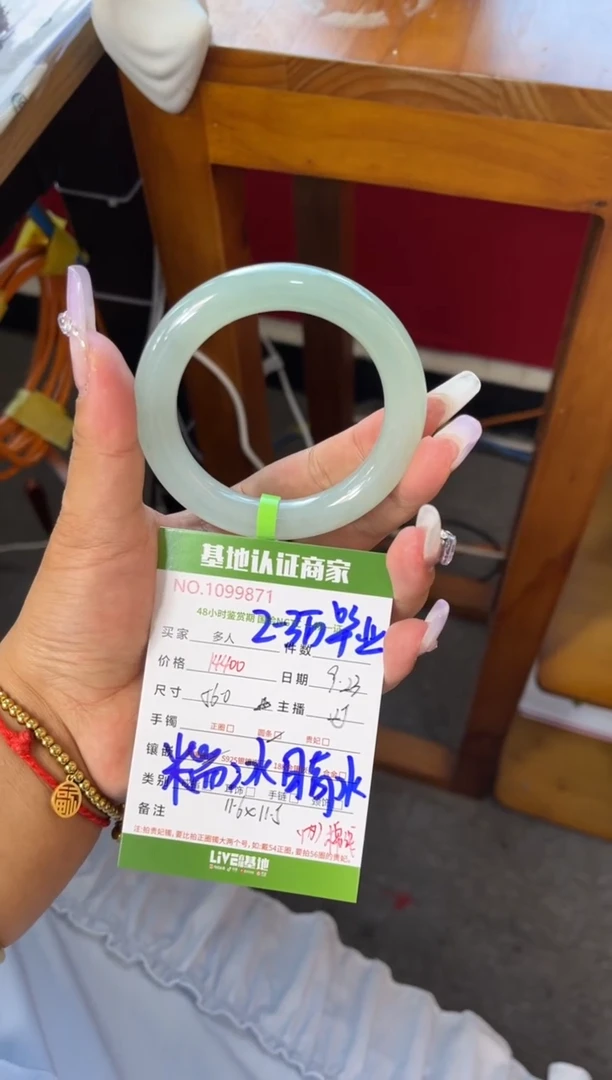 基地认证商家
NO.1099871
48小时鉴赏期
2-3万毕业
买家 多人 件数
价格 14400 日期 9.23
尺寸 56.0 主播
手镯 正圈□ 圆条☑ 贵妃□
镶嵌 S925银
糯冰晴水
类别 手链□
备注 11.6×11.5
注:拍贵妃镯,要比拍正圈镯大两个号,如:戴54正圈,要拍56圈的贵妃。
LIVE 基地